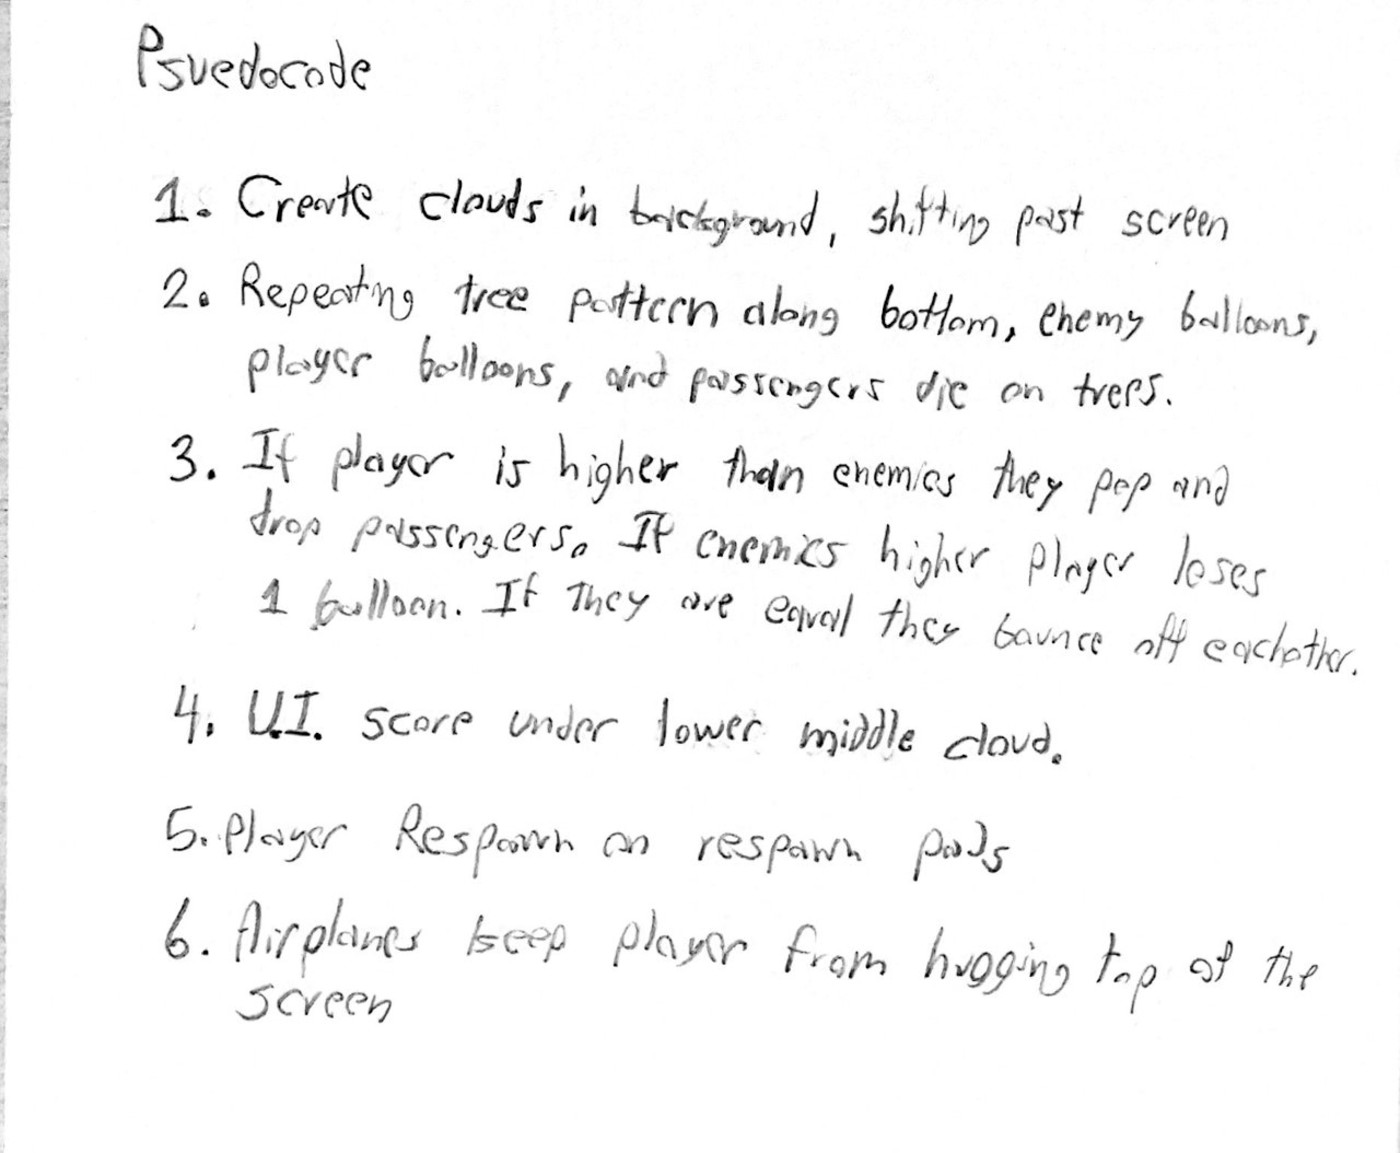 Psuedocode
1. Create clouds in background, shifting past screen
2. Repeating tree pattern along bottom, enemy balloons,
player balloons, and passengers die on trees.
3. If player is higher than enemies they pop and
drop passengers. If enemies higher player loses
1 balloon. If They are equal they bounce off eachother.
4. U.I. score under lower middle cloud.
5. Player Respawn on respawn pads
6. Airplanes keep player from hugging top of the
screen